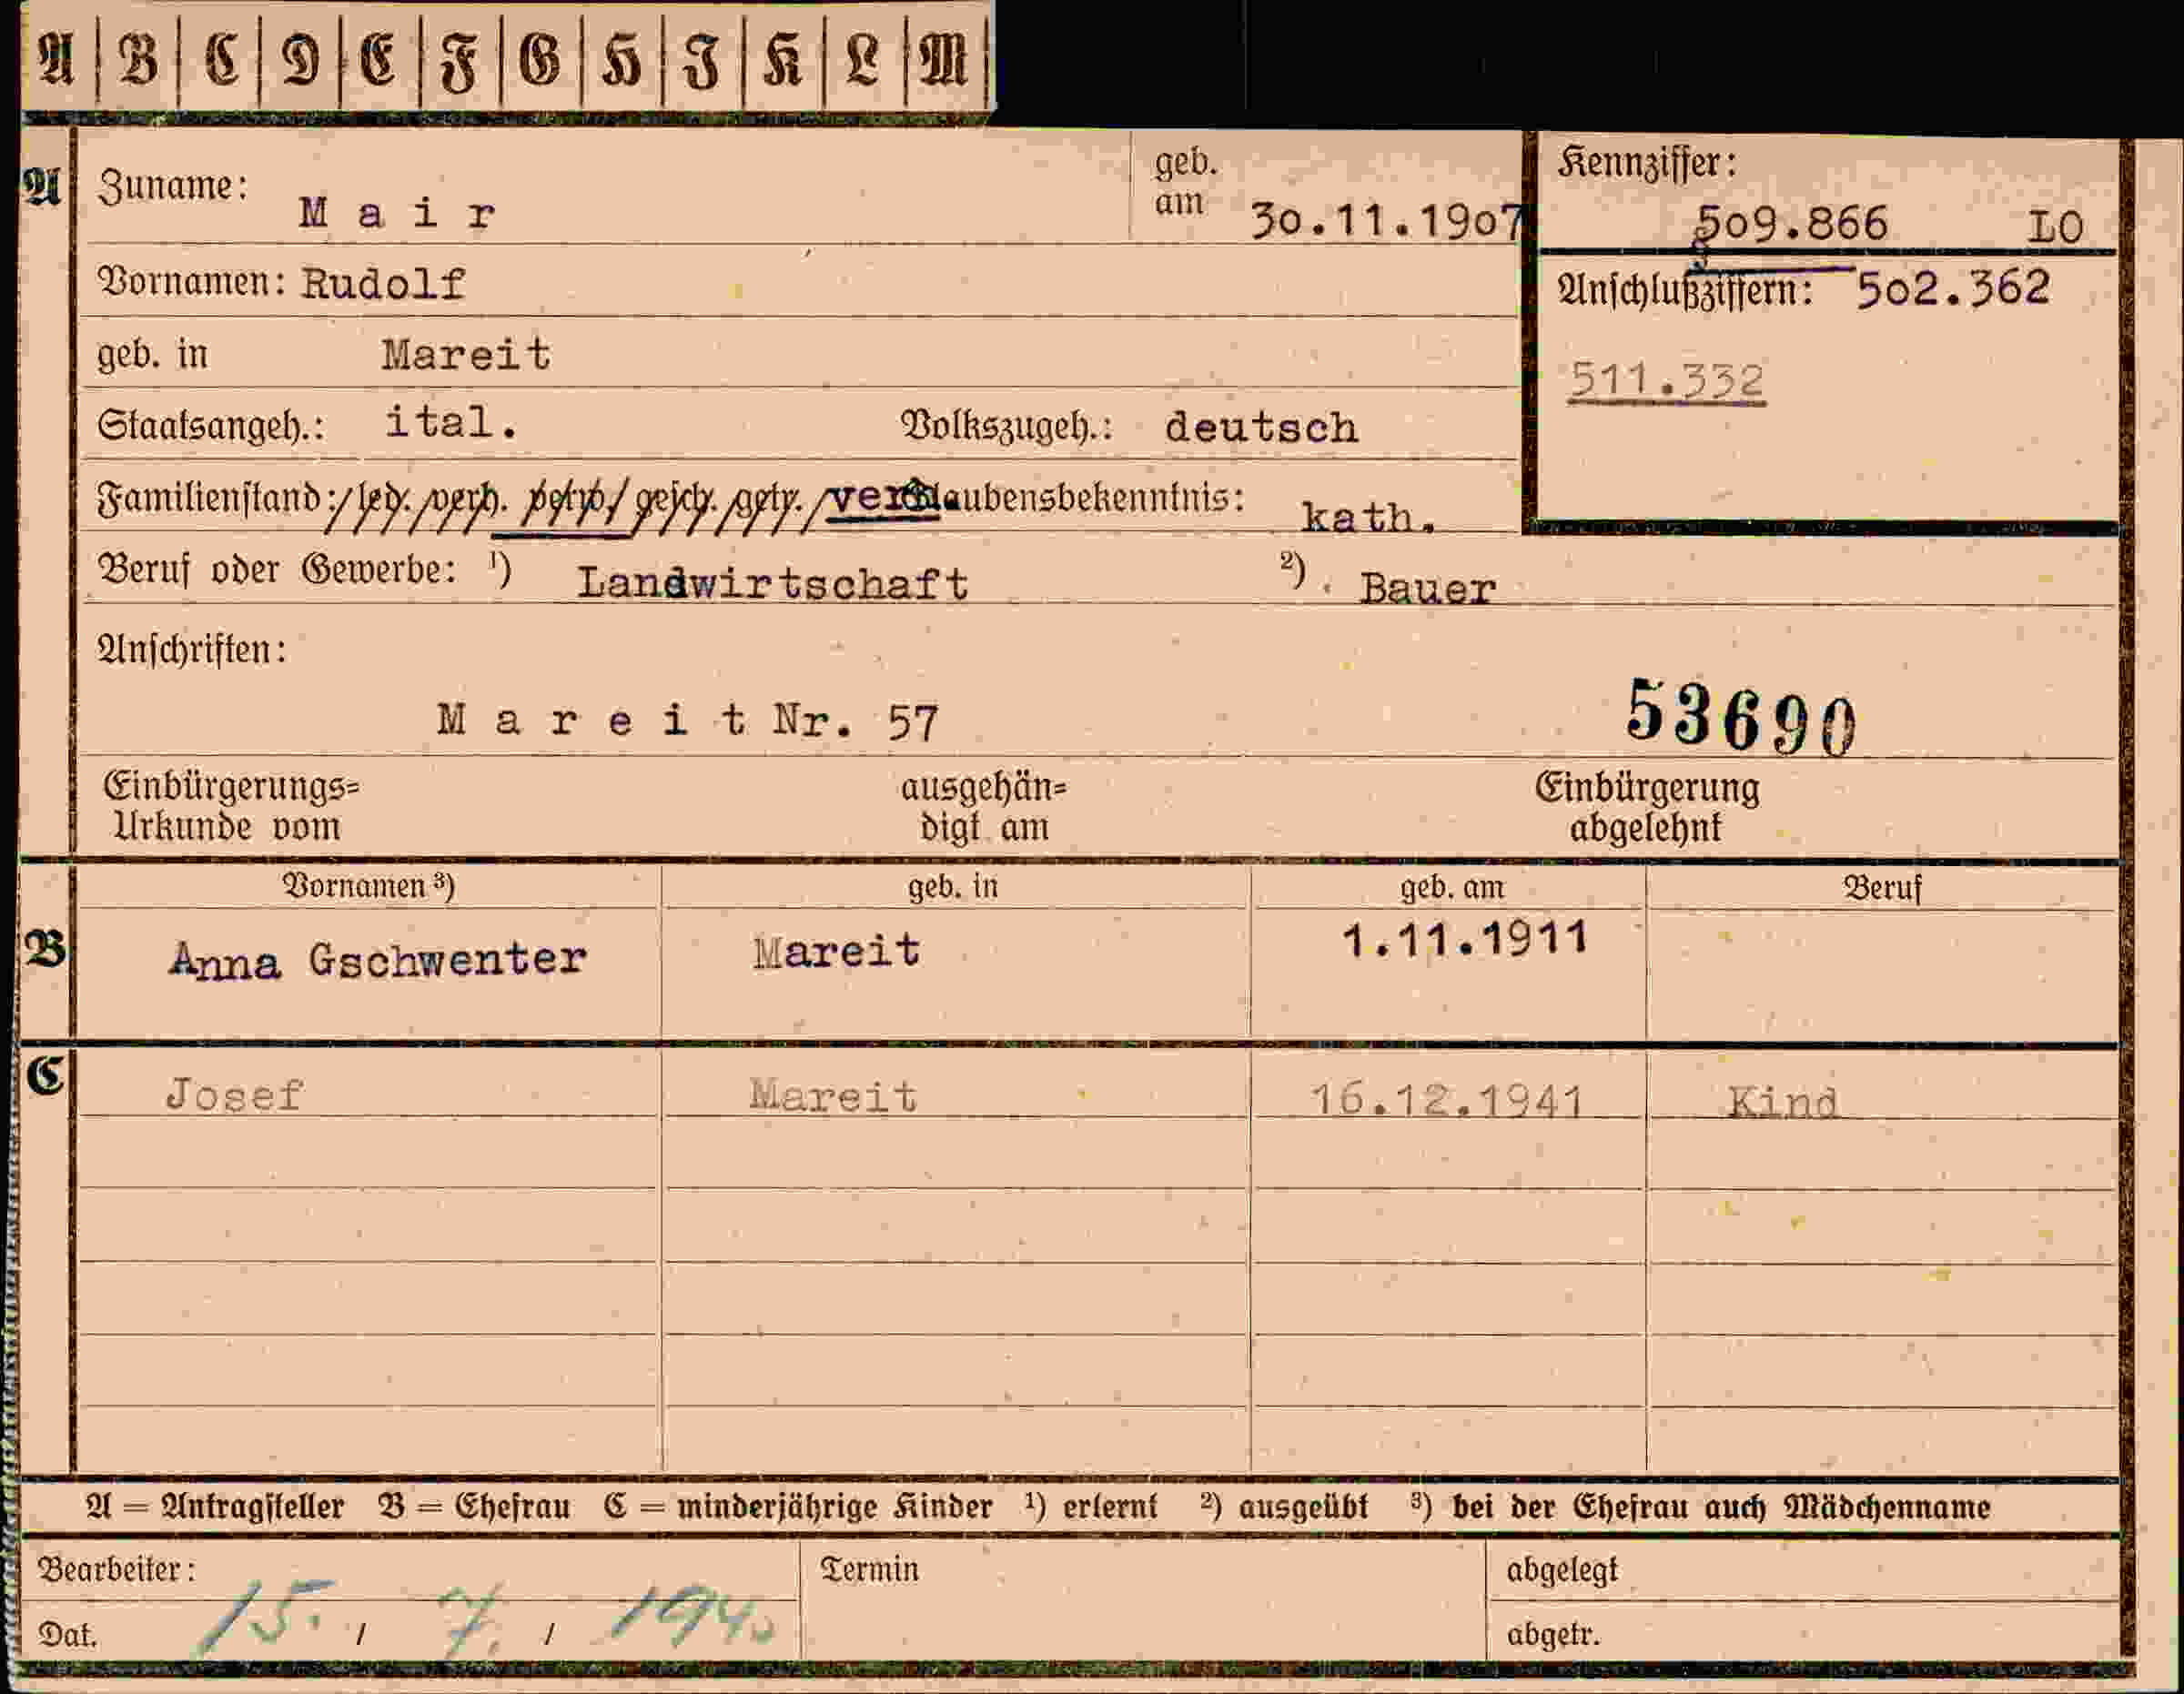 A B C D E F G H I K L M
A Zuname: Mair geb. am 30.11.1907 Kennziffer: 509.866 LO
Vornamen: Rudolf Anschlußziffern: 502.362
geb. in Mareit 511.332
Staatsangeh.: ital. Volkszugeh.: deutsch
Familienstand: / led. / verh. / verw. / gesch. / getr. / verh. Glaubensbekenntnis: kath.
Beruf oder Gewerbe: ¹) Landwirtschaft ²) Bauer
Anschriften:
Mareit Nr. 57 53690
Einbürgerungs= ausgehän= Einbürgerung
Urkunde vom digt am abgelehnt
Vornamen ³) geb. in geb. am Beruf
B Anna Gschwenter Mareit 1.11.1911
C Josef Mareit 16.12.1941 Kind
A = Antragsteller B = Ehefrau C = minderjährige Kinder ¹) erlernt ²) ausgeübt ³) bei der Ehefrau auch Mädchenname
Bearbeiter: Termin abgelegt
Dat. 15. / 7. / 1940 abgetr.